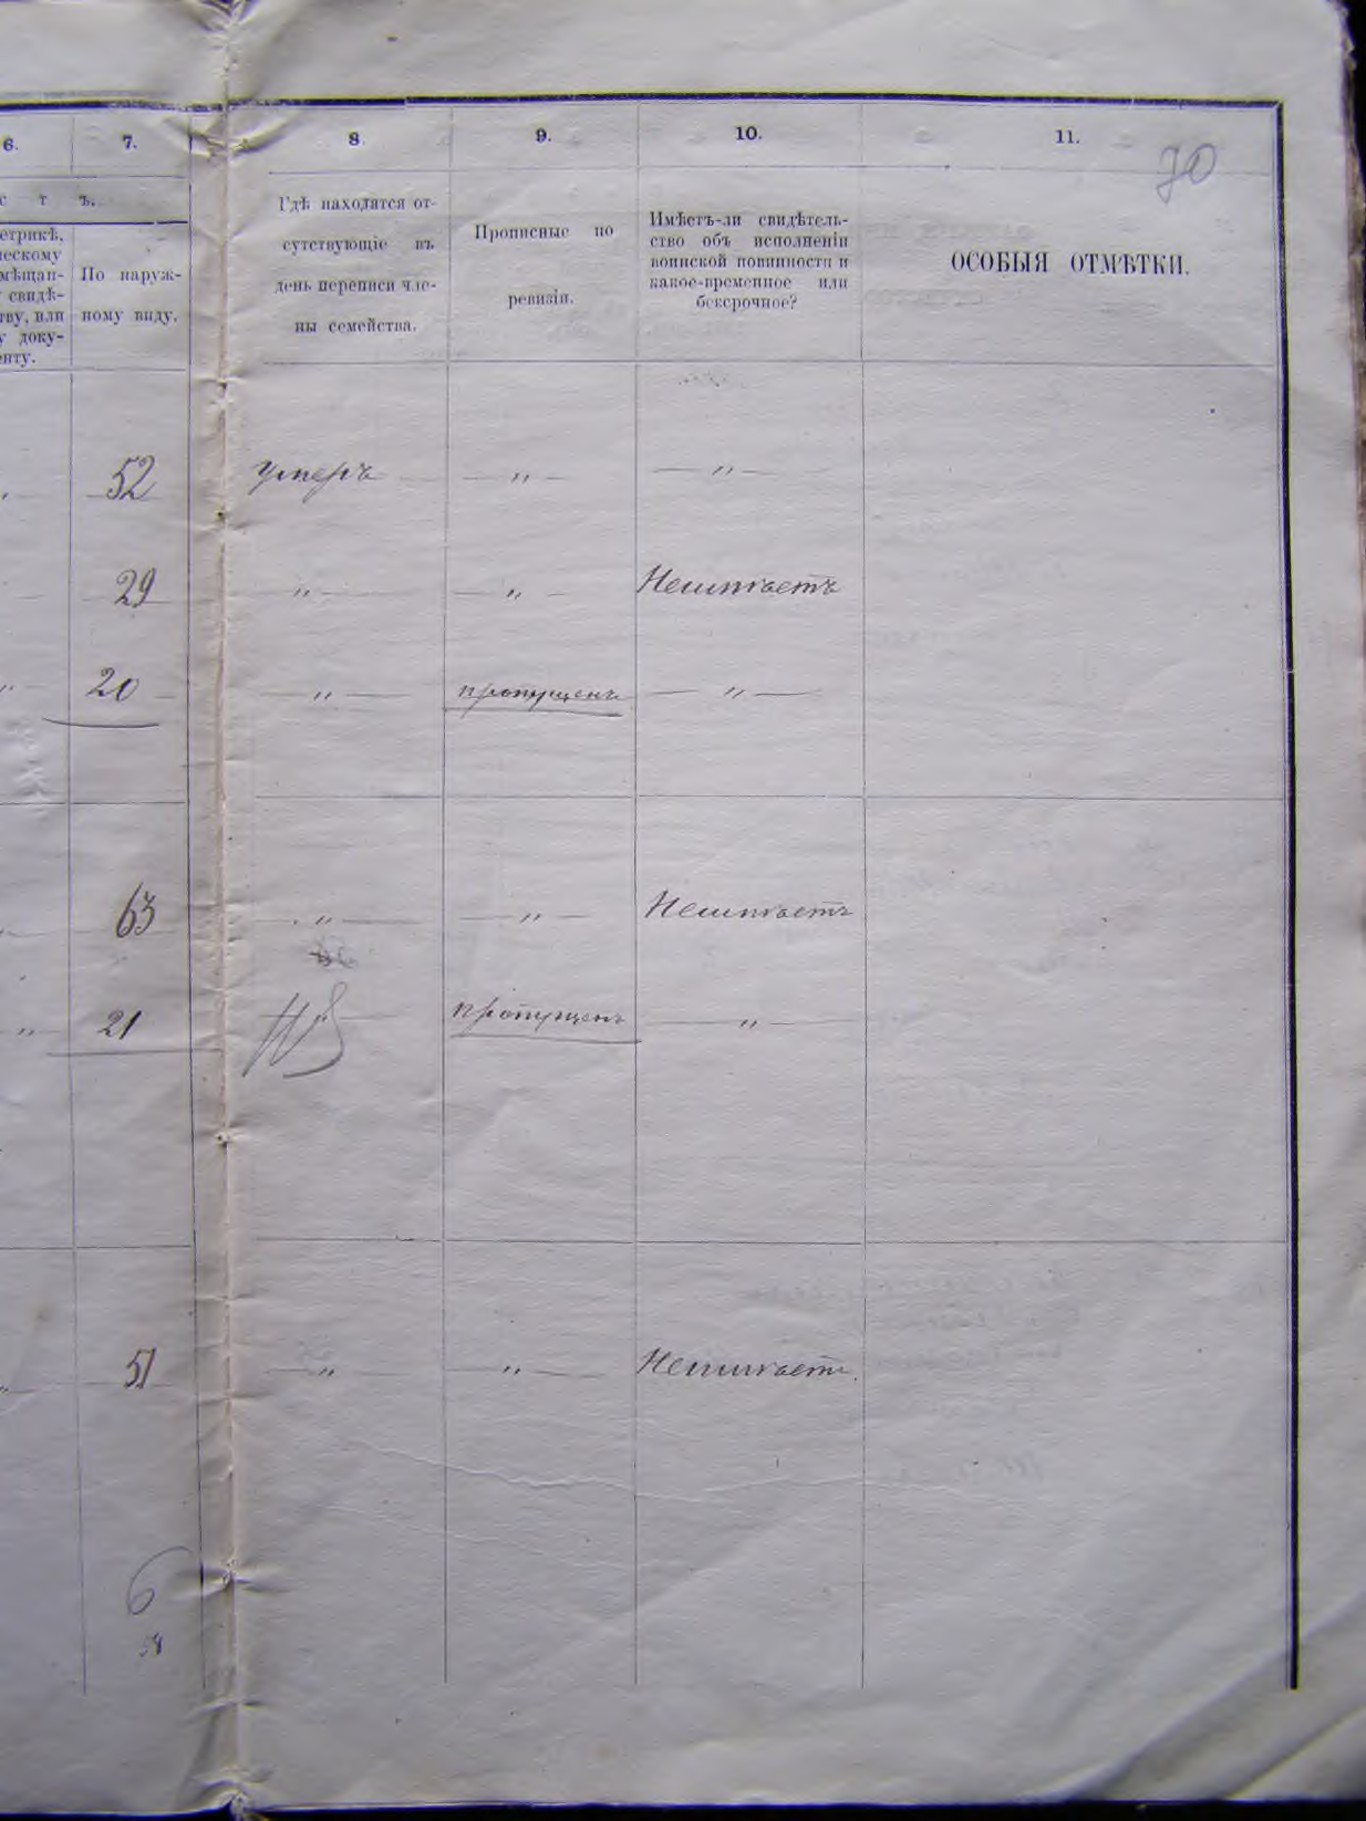 6. 7. 8. 9. 10. 11.
70
с т ъ.
етрикѣ,
ческому
мѣщан-
свидѣ-
тву, или
у доку-
енту.
По наруж-
ному виду.
Гдѣ находятся от-
сутствующіе въ
день переписи чле-
ны семейства.
Прописные по
ревизіи.
Имѣетъ-ли свидѣтель-
ство объ исполненіи
воинской повинности и
какое-временное или
безсрочное?
ОСОБЫЯ ОТМѢТКИ.
52 умеръ — „ — — „ —
29 „ — „ — Неимѣетъ
„ — 20 — „ — пропущенъ — „ —
63 „ — — „ — Неимѣетъ
„ — 21 пропущенъ — „ —
51 — „ — — „ — Неимѣетъ.
6